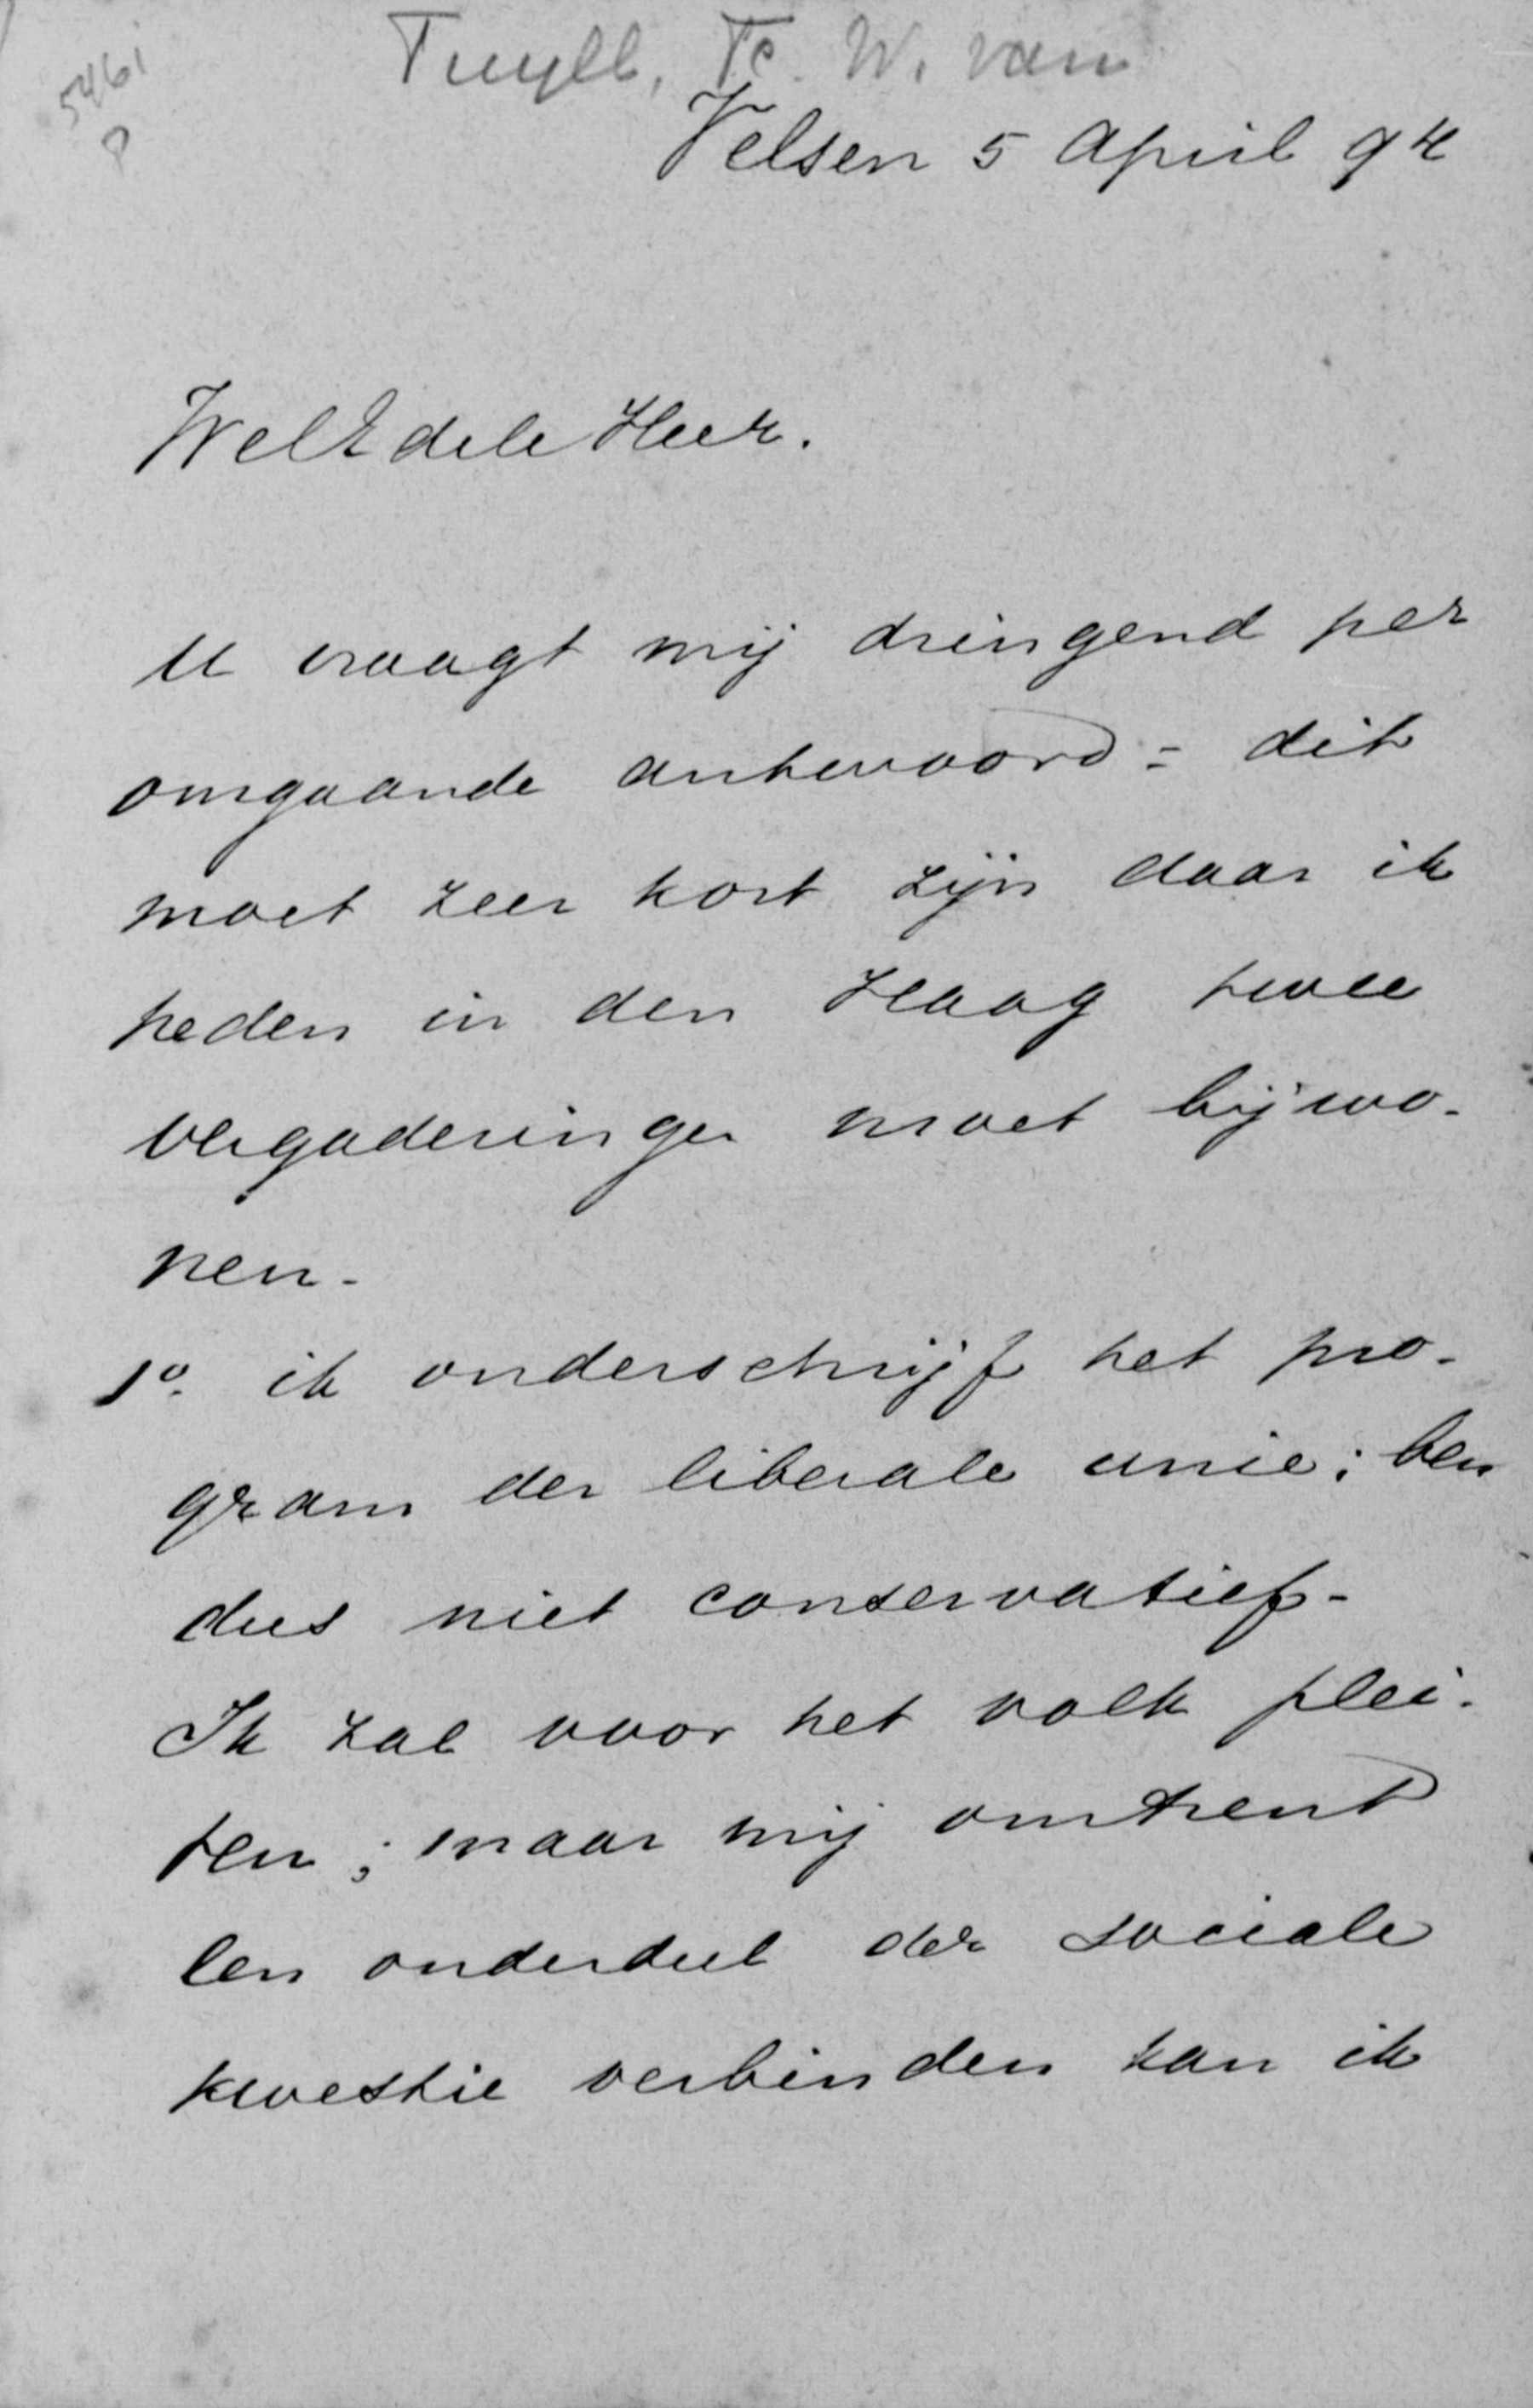 Tuyll, F. W. van
5461
P
Velsen 5 April 94
WelEdele Heer.
U vraagt mij dringend per
omgaande antwoord = dit
moet zeer kort zijn daar ik
heden in den Haag twee
vergaderingen moet bijwo-
nen-
1o. ik onderschrijf het pro-
gram der liberale unie; ben
dus niet conservatief-
Ik zal voor het volk plei-
ten; maar mij omtrent
een onderdeel der sociale
kwestie verbinden kan ik